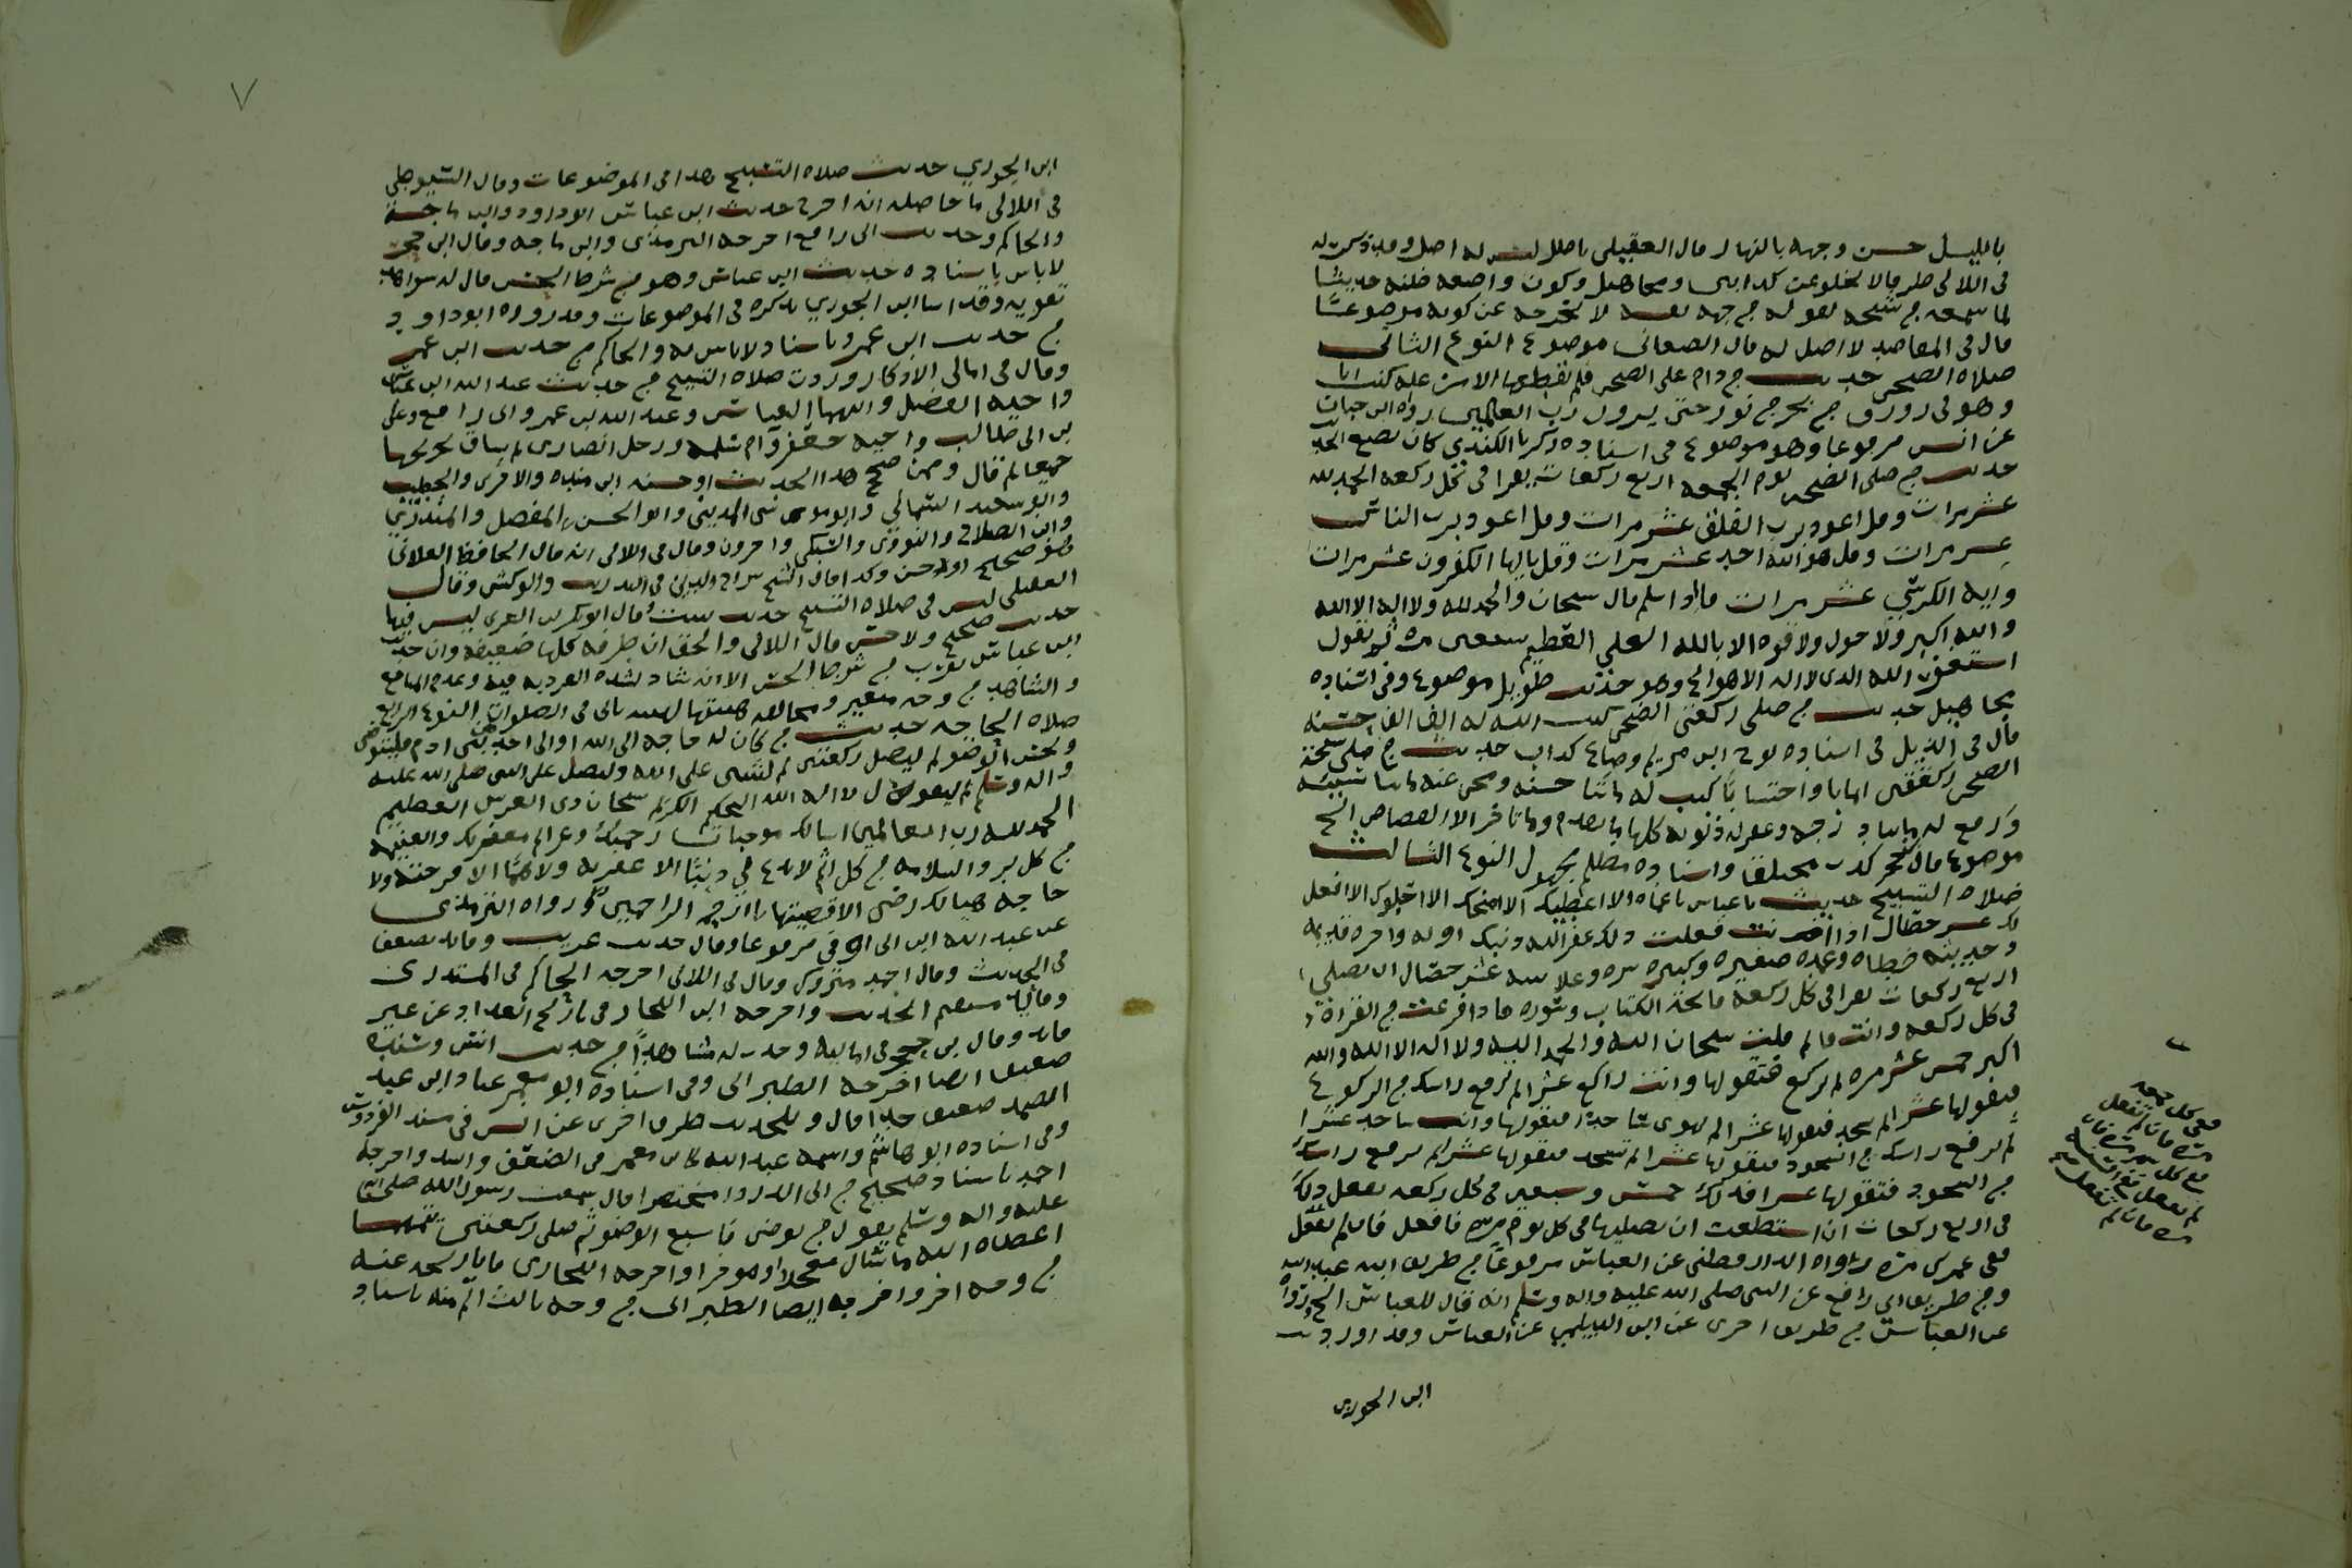 بالليل حسن وجهه بالنهار قال العقيلي باطل ليس له اصل وقد ذكر له
في اللآلي طرقا لا تخلو عن كذابين ومجاهيل وكون واضعه ظنه حديثا
لما سمعه من شيخه بقوله من جهة نفسه لا يخرجه عن كونه موضوعا
قال في المقاصد لا اصل له قال الصغاني موضوع النوع الثاني
صلاة الضحى حديث من دام على الضحى فلم يقطعها الا من علة كنت انا
وهو في زورق من بحر من نور حتى يزور رب العالمين رواه ابن حبان
عن انس مرفوعا وهو موضوع في اسناده زكريا الكندي كان يضع الحديث
حديث من صلى الضحى يوم الجمعة اربع ركعات يقرا في كل ركعة الحمد لله
عشر مرات وقل اعوذ برب الفلق عشر مرات وقل اعوذ برب الناس
عشر مرات وقل هو الله احد عشر مرات وقل يايها الكفرون عشر مرات
واية الكرسي عشر مرات فاذا سلم قال سبحان والحمد لله ولا اله الا الله
والله اكبر ولا حول ولا قوة الا بالله العلي العظيم سبعين مرة ثم يقول
استغفر الله الذي لا اله الا هو الخ وهو حديث طويل موضوع وفي اسناده
مجاهيل حديث من صلى ركعتي الضحى كتب الله له الف الف حسنة
قال في الذيل في اسناده نوح ابن مريم وضاع كذاب حديث من صلى سبحة
الضحى ركعتين ايمانا واحتسابا كتب له مائتا حسنة ومحى عنه مائتا سيئة
ورفع له مائتا درجة وغفر له ذنوبه كلها ما تقدم وما تاخر الا القصاص الخ
موضوع قال حجر كذب مختلق واسناده مظلم مجهول النوع الثالث
صلاة التسبيح حديث يا عباس يا عماه الا اعطيك الا امنحك الا احبوك الا افعل
لك عشر خصال اذا انت فعلت ذلك غفر الله ذنبك اوله واخره قديمه
وحديثه خطاه وعمده صغيره وكبيره سره وعلانيته عشر خصال ان تصلي
اربع ركعات تقرا في كل ركعة فاتحة الكتاب وسورة فاذا فرغت من القراة
في كل ركعة وانت قائم قلت سبحان الله والحمد لله ولا اله الا الله والله
اكبر خمس عشر مرة ثم تركع فتقولها وانت راكع عشرا ثم ترفع راسك من الركوع
فتقولها عشرا ثم تسجد فتقولها عشرا ثم تهوي ساجدا فتقولها وانت ساجد عشرا
ثم ترفع راسك من السجود فتقولها عشرا ثم تسجد فتقولها عشرا ثم ترفع راسك
من السجود فتقولها عشرا فذلك خمس وسبعين في كل ركعة تفعل ذلك
في اربع ركعات ان استطعت ان تصليها في كل يوم مرة فافعل فان لم تفعل
ففي عمرك مرة رواه الدارقطني عن العباس مرفوعا من طريق ابنه عبد الله
ومن طريق ابي رافع عن النبي صلى الله عليه واله وسلم انه قال للعباس الخ ورواه
عن العباس من طريق اخرى عن ابن الديلمي عن العباس وقد اورد
ففي كل جمعة
مرة فان لم تفعل
ففي كل شهر مرة فان
لم تفعل ففي كل سنة
مرة فان لم تفعل
ابن الجوزي
٧
ابن الجوزي حديث صلاة التسبيح هذا في الموضوعات وقال السيوطي
في اللآلي ما حاصله انه اخرج حديث ابن عباس ابو داود وابن ماجة
والحاكم وحديث ابي رافع اخرجه الترمذي وابن ماجه وقال ابن حجر
لا باس باسناده حديث ابن عباس وهو من شرط الحسن فان له شواهد
تقويه وقد اسا ابن الجوزي بذكره في الموضوعات وقد رواه ابو داود
من حديث ابن عمرو باسناد لا باس به والحاكم من حديث ابن عمر
وقال في امالي الاذكار وردت صلاة التسبيح من حديث عبد الله ابن عباس
واخيه الفضل وابيهما العباس وعبد الله بن عمرو وابي رافع وعلي
بن ابي طالب واخيه جعفر وام سلمة ورجل انصاري ثم ساق تخريجها
جميعا ثم قال وممن صحح هذا الحديث او حسنه ابن منده والاجري والخطيب
وابو سعيد السمعاني وابو موسى المديني وابو الحسن بن المفضل والمنذري
وابن الصلاح والنووي والسبكي واخرون وقال في اللآلي انه قال الحافظ العلائي
هو صحيح او حسن وكذا قال الشيخ سراج الدين في التدريب والزركشي وقال
العقيلي ليس في صلاة التسبيح حديث يثبت وقال ابو بكر بن العربي ليس فيها
حديث صحيح ولا حسن قال في اللآلي والحق ان طرقه كلها ضعيفة وان حديث
ابن عباس يقرب من شرط الحسن الا انه شاذ لشدة الفردية فيه وعدم المتابع
والشاهد من وجه معتبر ومخالفة هيئتها لهيئة باقي الصلوات النوع الرابع
صلاة الحاجة حديث من كان له حاجة الى الله او الى احد من بني ادم فليتوض
وليحسن الوضو ثم ليصل ركعتين ثم ليثني على الله وليصل على النبي صلى الله عليه
واله وسلم ثم ليقول لا اله الا الله الحكيم الكريم سبحان ذي العرش العظيم
الحمد لله رب العالمين اسالك موجبات رحمتك وعزائم مغفرتك والغنيمة
من كل بر والسلامة من كل اثم لا تدع لي ذنبا الا غفرته ولا هما الا فرجته ولا
حاجة هي لك رضى الا قضيتها يا ارحم الراحمين رواه الترمذي
عن عبد الله ابن ابي اوفى مرفوعا وقال حديث غريب وفائد يضعف
في الحديث وقال احمد متروك وقال في اللآلي اخرجه الحاكم في المستدرك
وقال فائد مستقيم الحديث واخرجه ابن النجار في تاريخ بغداد عن غير
فائد وقال بن حجر في اماليه وجدت له شاهدا من حديث انس وسنده
ضعيف ايضا اخرجه الطبراني وفي اسناده ابو معمر عباد ابن عبد
الصمد ضعيف جدا قال وللحديث طرق اخرى عن انس في مسند الفردوس
وفي اسناده ابو هاشم واسمه عبد الله كابي معمر في الضعف واشد واخرجه
احمد باسناد صحيح من ابي الدردا مختصرا قال سمعت رسول الله صلى الله
عليه واله وسلم يقول من توضى فاسبغ الوضو ثم صلى ركعتين يتمهما
اعطاه الله ما سال معجلا او موخرا واخرجه البخاري في تاريخه عنه
من وجه اخر واخرجه ايضا الطبراني من وجه ثالث اتم منه باسناد